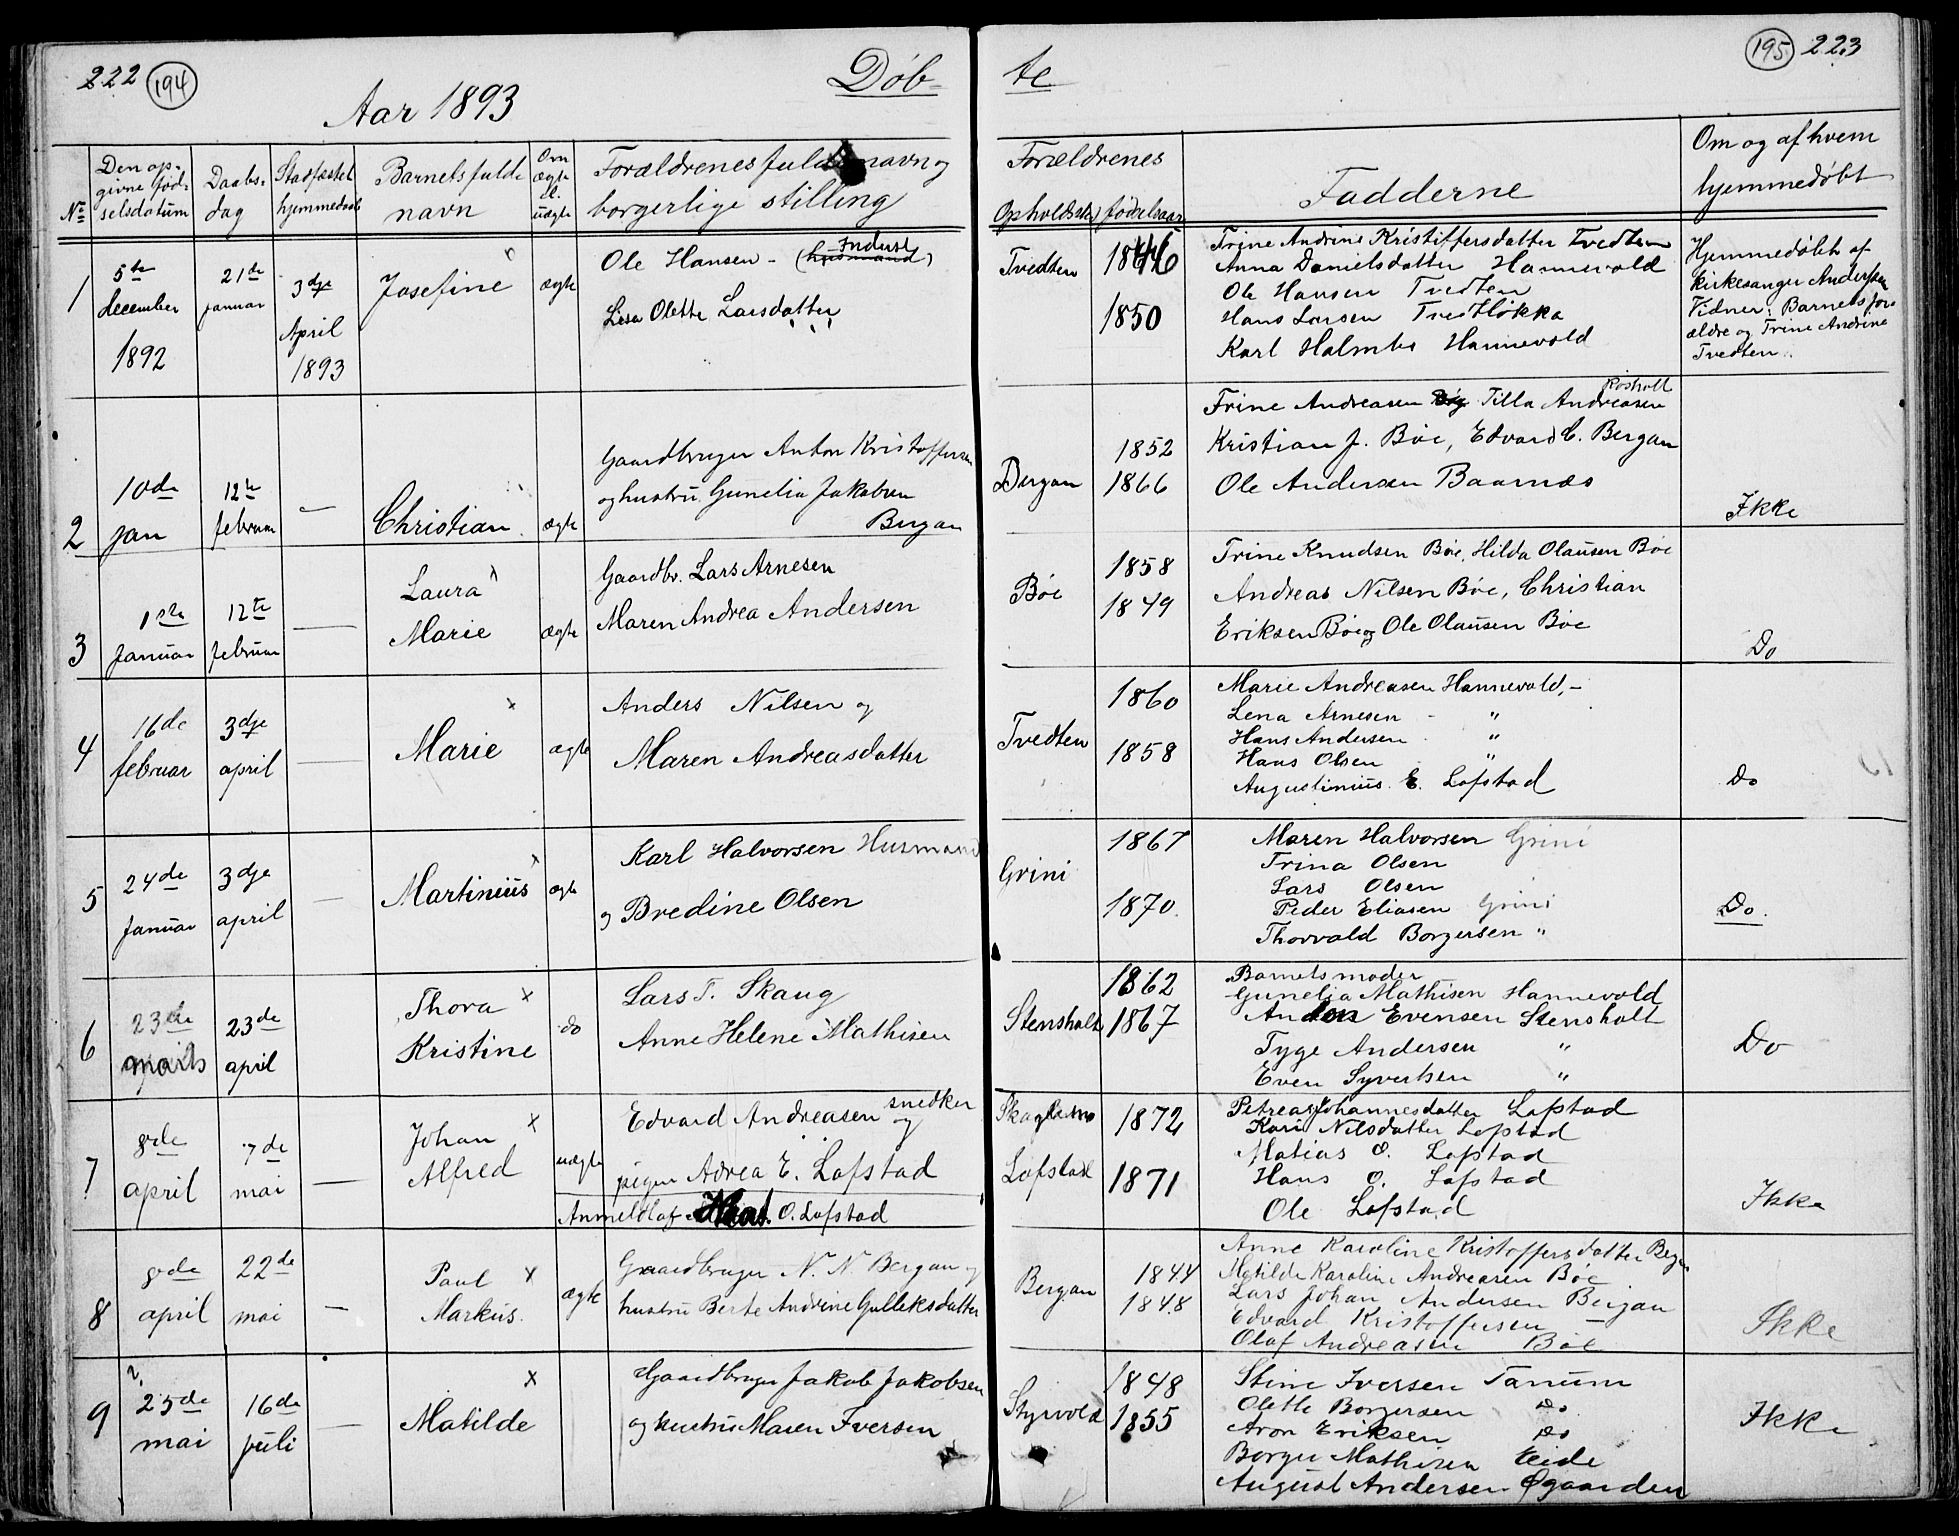 222 194
Døb-
Aar 1893
No
Den op-
givne fød-
selsdatum
Daabs-
dag
Stadfæstet
hjemmedaab
Barnets fulde
navn
Om
ægte
el.
uægte
Forældrenes fulde navn og
borgerlige stilling
1
5te
december
1892
21de
januar
3dje
April
1893
Josefine
ægte
Ole Hansen - (husmand)
Inderst
Lisa Olette Larsdatter
2
10de
jan
12te
februar
—
Christian
ægte
Gaardbruger Anton Kristoffersen
og hustru Gunelia Jakobsen
Bergan
3
1ste
Januar
12te
februar
—
Laura
Marie
ægte
Gaardbr. Lars Arnesen
Maren Andrea Andersen
4
16de
februar
3dje
april
—
Marie
ægte
Anders Nilsen og
Maren Andreasdatter
5
24de
Januar
3dje
april
—
Martinius
ægte
Karl Halvorsen Husmand
og Bredine Olsen
6
23de
23de
april
Thora
Kristine
do
Lars T. Skaug
Anne Helene Mathisen
7
8de
april
7de
mai
—
Johan
Alfred
uægte
Edvard Andreasen snedker
og
pigen Adrea E. Lofstad
Anmeldt af O. Lofstad
8
8de
april
22de
mai
—
Paul
Markus.
ægte
Gaardbruger N. N Bergan og
hustru Berte Andrine Gulleksdatter
9
25de
mai
16de
juli
—
Matilde
Gaardbruger Jakob Jakobsen
og hustru Maren Iversen
te
195 223
Forældrenes
Opholdssted
fødselsaar
Fadderne
Om og af hvem
hjemmedøbt
Tvedten
1846
1850
Trine Andrine Kristiffersdatter Tvedten
Anna Danielsdatter Hannevold
Ole Hansen Tvedten
Hans Larsen
Karl Holmbo Hannevold
Hjemmedøbt af
kirkesanger Andersen
Vidner: Barnets for-
ældre og Trine Andrine
Tvedten.
Bergan
1852
1866
Rosholt
Trine Andreasen Tilla Andreasen
Kristian J. Böe, Edvard C. Bergan
Ole Andersen Baarnæs
Ikke
Böe
1858
1849
Trine Knudsen Böe, Hilda Olausen Böe
Andreas Nilsen Böe, Christian
Eriksen Böe og Ole Olausen Böe
Do
Tvedten
1860
1858
Marie Andreasen Hannevold, -
Lena Arnesen - "
Hans Andersen "
Hans Olsen "
Augustinius E. Lofstad
Do
Grini
1867
1870.
Maren Halvorsen Grini
Trina Olsen
Lars Olsen
Peder Eliasen Grini
Thorvald Borgersen "
Do.
Stensholt
1862
1867
Barnets moder
Gunelia Mathisen Hannevold
Anton Evensen Stensholt
Tyge Andersen "
Even Syvertsen "
Do
Lofstad
1872
1871
Petrea Johannesdatter Lofstad
Kari Nilsdatter Lofstad
Matias O. Lofstad
Hans O. Lofstad
Ole Lofstad
Ikke
Bergan
1844
1848
Anne Karoline Kristoffersdatter Bergan
Matilde Karoline Andreasen Böe
Lars Johan Andersen Bergan
Edvard Kristoffersen —
Olaf Andreasen Böe
Ikke
Styrvold
1848
1855
Stine Iversen Tanum
Olette Borgersen Do
Aron Eriksen Do
Borger Mathisen Eide
August Andersen Øgaarden
Ikke